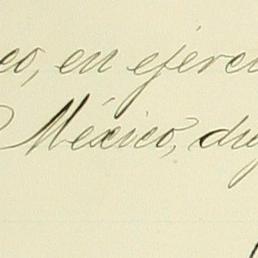 co, en ejerci
México, du